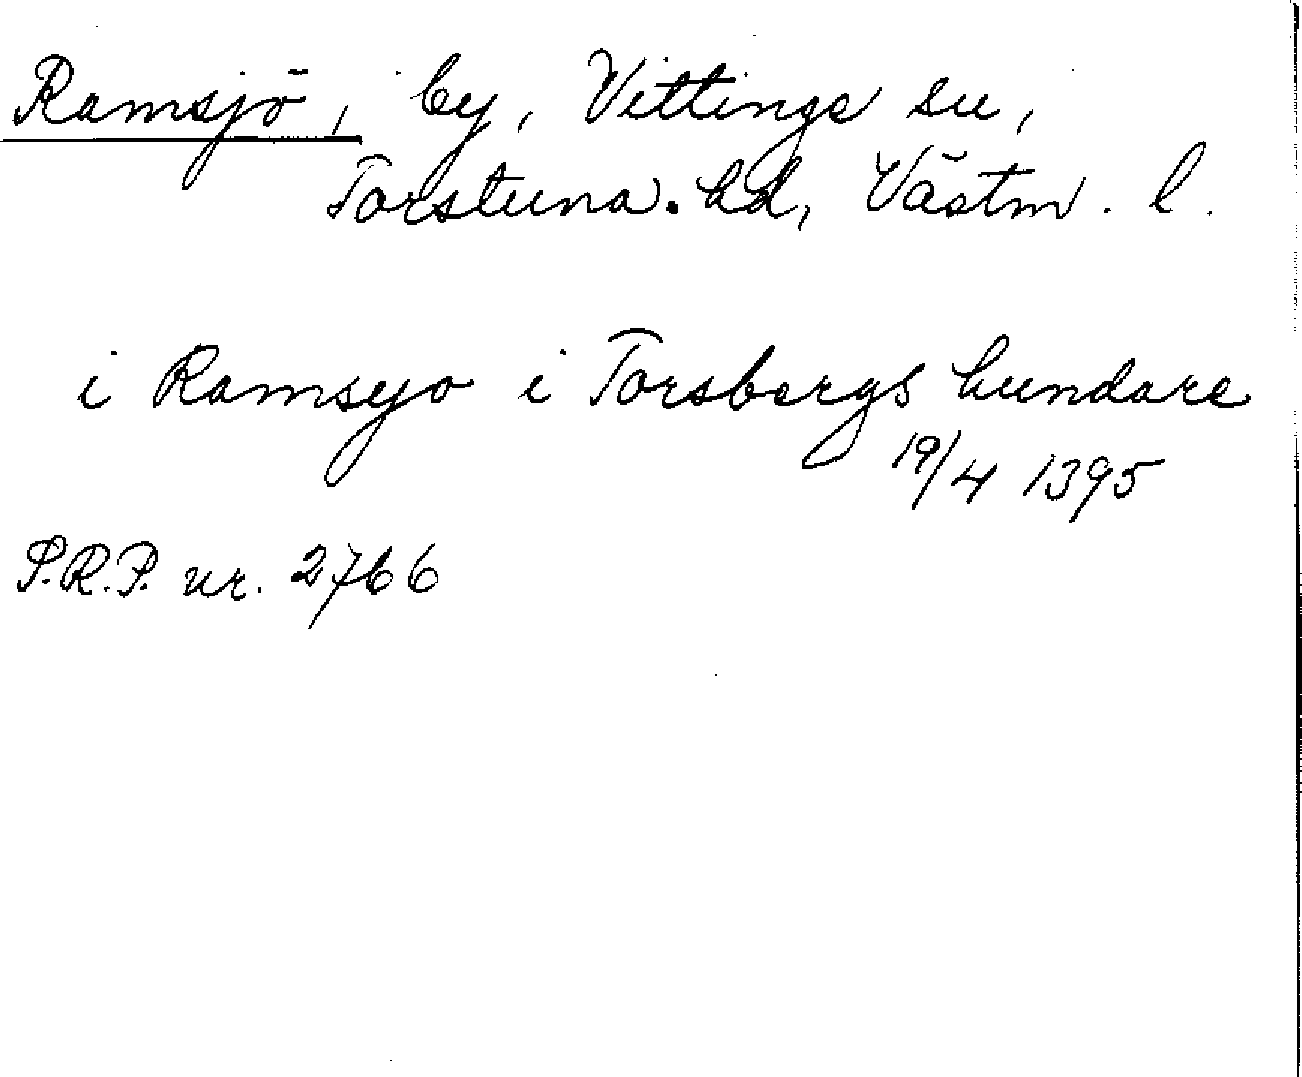 Ramsjö, by, Vittinge sn,
Torstuna hd, Västm. l.
i Ramsyo i Torsbergs hundare
19/4 1395
S.R.P. nr. 2766